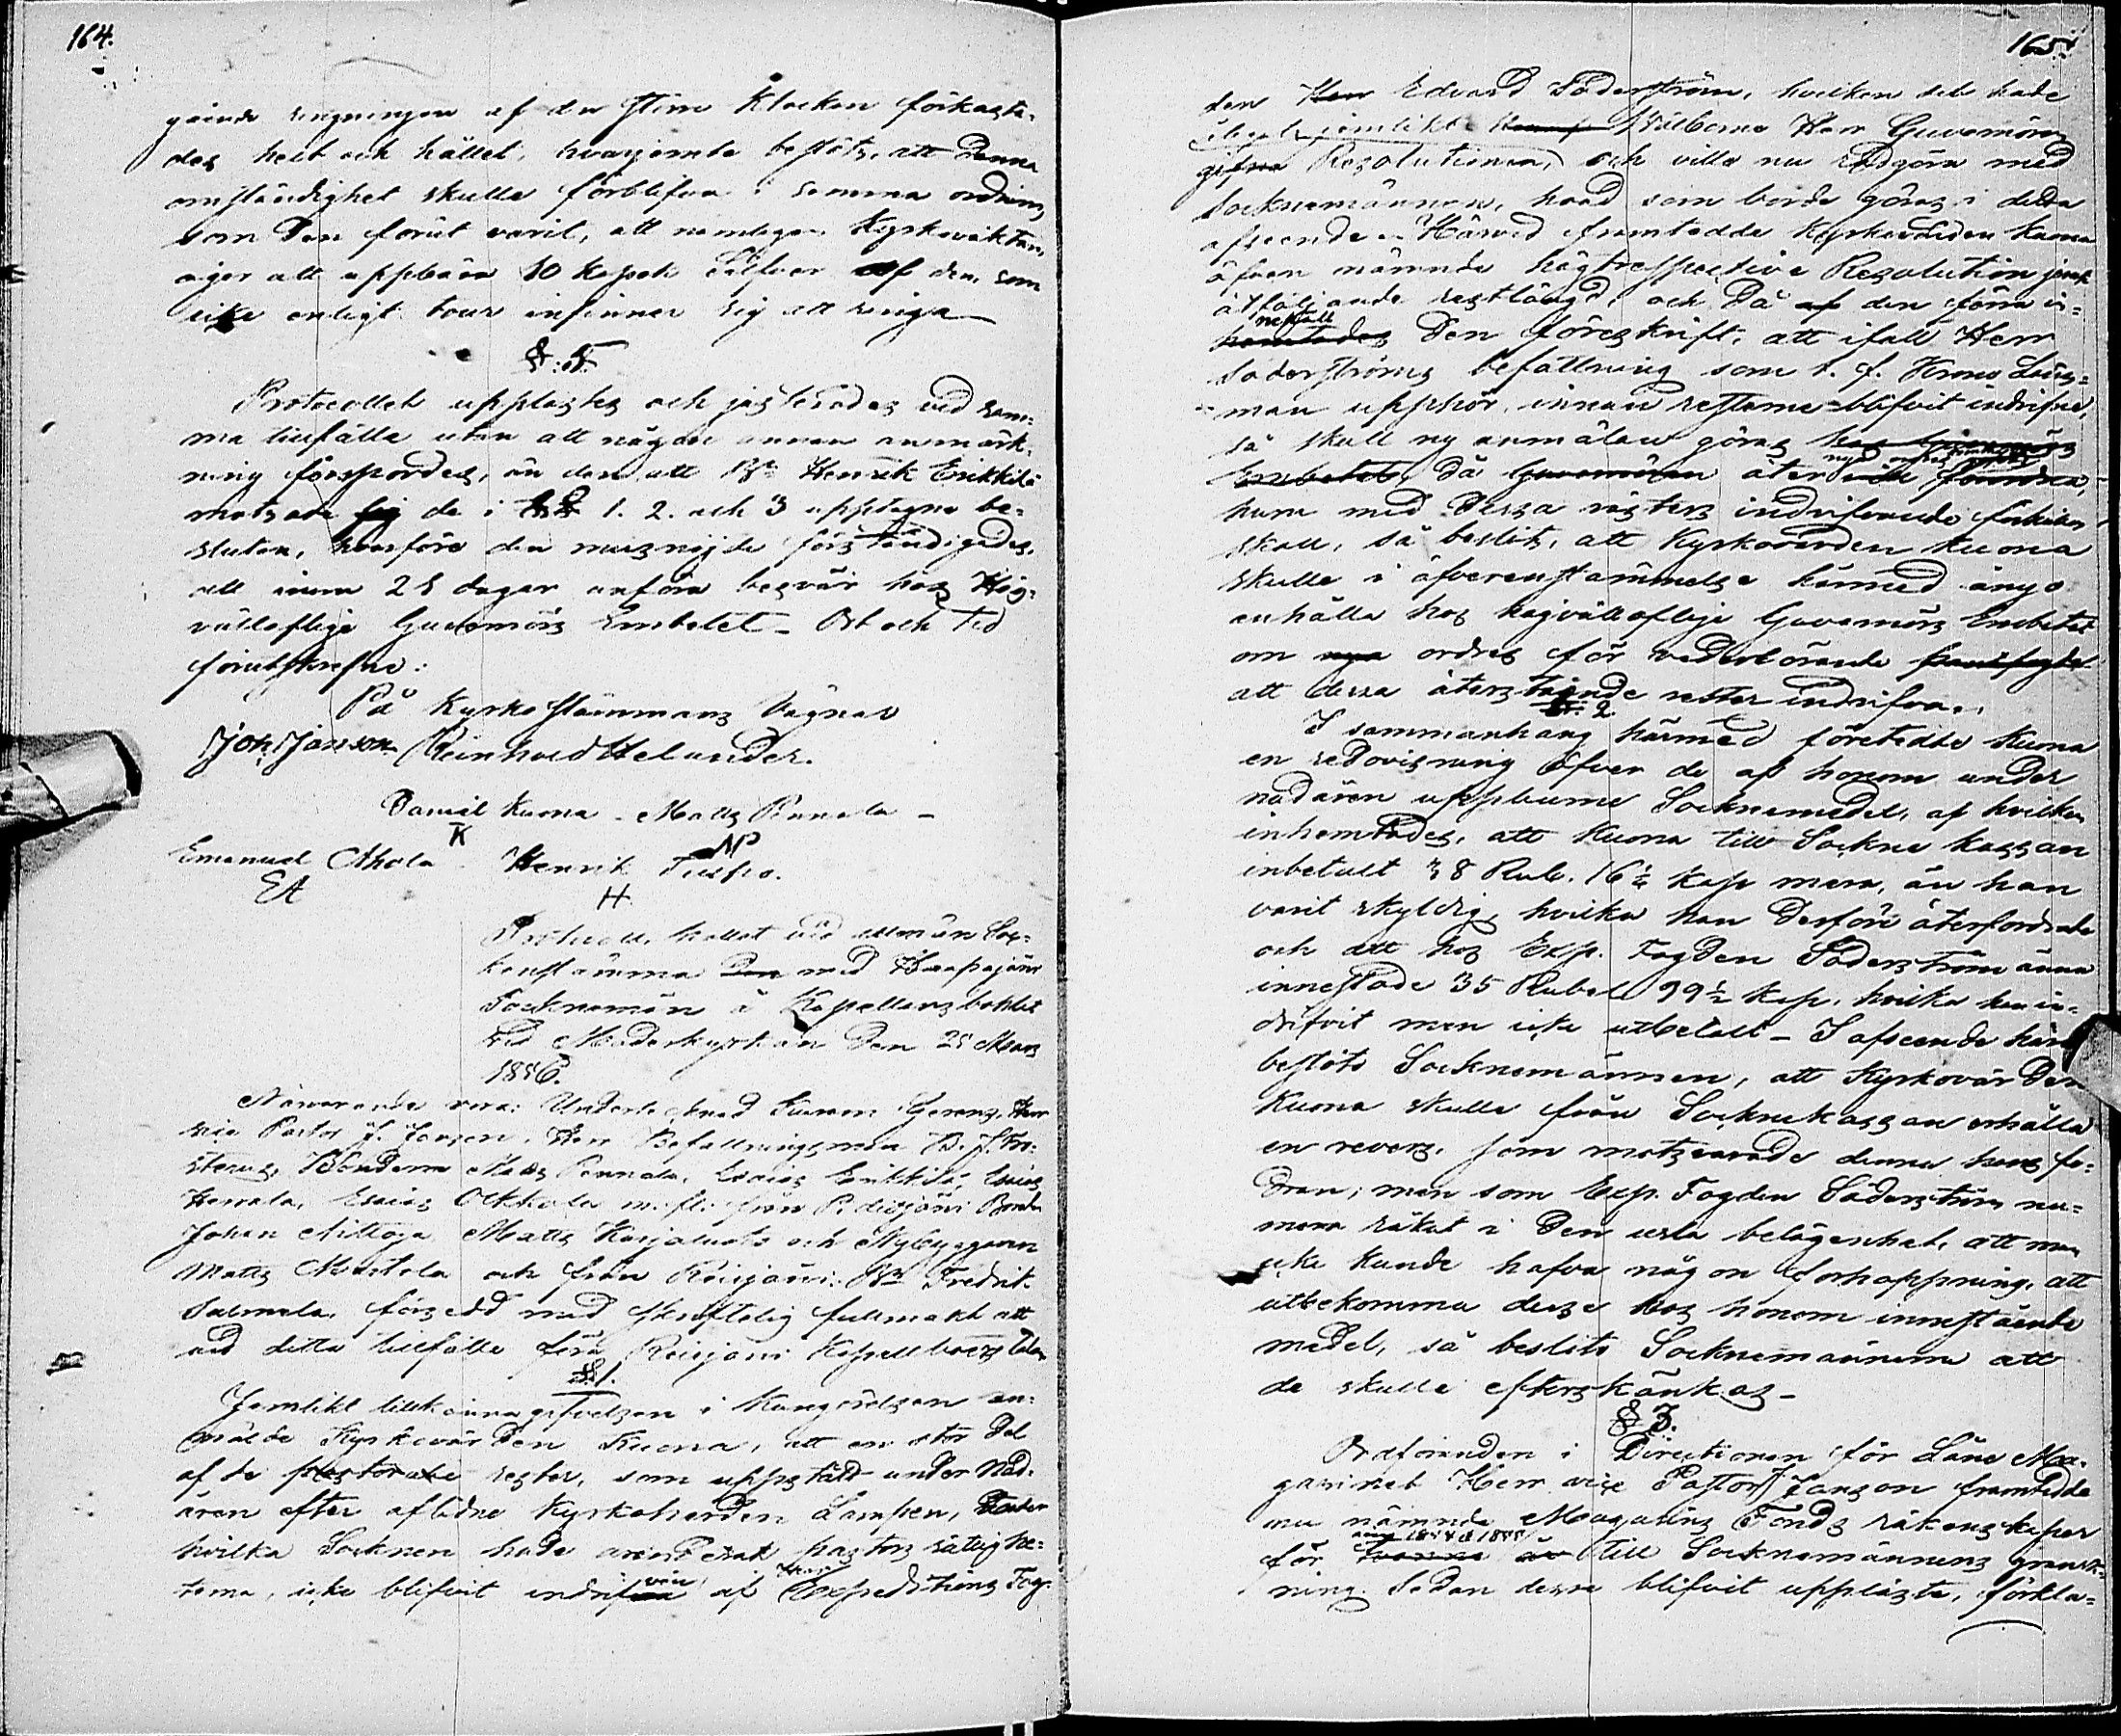 164.
gående ringningen af den större Klockan förkasta-
des helt och hållet, hvarjemte beslöts, att denna
omständighet skulle förblifva i samma ordning,
som den förut varit, att nemligen Kyrkoväktaren
äger att uppbära 10 kopek Silfver af den, som
icke enligt tour infinner sig att ringa
§. 5.
Protocollet upplästes och justerades vid sam-
ma tillfälle utan att någon annan anmärk-
ning förspordes, än den att Bn Henrik Erikkilä
motsade de i §§ 1. 2. och 3 upptagne be-
sluten, hvarföre den missnöjde förständigades,
att inom 28 dagar anföra besvär hos Hög-
vällofliga Guvernörs Embetet. Ort och tid
förutskrefne:
På Kyrkostämmans Vägnar
Joh. Janson Reinhold Helander.
Daniel Kuona - Matts Pennala -
K
Emanuel Ahola Henrik
EA H
Protocoll, hållet vid allmän Soc-
kenstämma med Haapajärvi
Socknemän å Kapellansbohlet
vid Moderkyrkan den 25 Mars
1856.
Närvarande voro: Undertecknad Herr
vice Pastor J. Janson, Herr Befallningsman
Bönderne Matts Pennala, Esaias Erikkilä, Esaias
Esaias m. fl. från Pidisjärvi Bonden
Johan Niltoja Matts Karjaluoto och Nybyggaren
Matts Mustola och från Reisjärvi Bn Fredrik
Salmela, försedd med skriftelig fullmakt att
vid detta tillfälle föra Reisjärvi Kapellboers talan
§. 1.
Jemlikt tillkännagifvelsen i Kungörelsen an-
mälde Kyrkovärden Kuona, att en stor del
af de pastorale rester, som uppstått under Nåd-
åren efter aflidne Kyrkoherden Lampen, under
hvilka Socknen hade arenderat pastors rättighe-
terna, icke blifvit indrifven af Expeditions Fog-
165.
den Herr Edvard Söderström, hvilken det hade
ålegat jemlikt Välborne Herr Guvernörens
gifna Resolutionen, och ville nu rådgöra med
Socknemännen, hvad som borde göras i detta
afseende. - Härvid framtedde Kyrkovärden Kuona
äfven nämnde högtrespective Resolution jemte
åtföljande restlängd, och då af den förra in-
nehåll
hemtades den föreskrift, att ifall Herr
Söderströms befattning som t. f. Krono Läns-
man upphör, innan resterne blifvit indrifne,
så skall ny anmälan göras hos Guvernörs
Embetet, då Guvernören åter förordna,
huru med dessa resters indrifvande förhållas
skall, så beslöts, att Kyrkovärden Kuona
skulle i öfverensstämmelse härmed ånyo
anhålla hos högvällofliga Guvernörs Embetet
om nya ordres för vederbörande
att dessa återstående rester indrifva.
§. 2
I sammanhang härmed företedde Kuona
en redovisning öfver de af honom under
nådåren uppburne Socknemedel, af hvilken
inhemtades, att Kuona till Sockne kassan
inbetalt 38 Rub. 16½ kop mera, än han
varit skyldig, hvilka han derföre återfordrade
och att hos Exp. Fogden Söderström ännu
innestode 35 Rubel 99½ kop. hvilka han in-
drifvit men icke utbetalt - I afseende härå
beslöto Socknemännen, att Kyrkovärden
Kuona skulle från Socknekassan erhålla
en revers, som motsvarade denna hans for-
dran; men som Exp. Fogden Söderström nu-
mera råkat i den usla belägenhet, att man
icke kunde hafva någon förhoppning, att
utbekomma dessa hos honom innestående
medel, så beslöto Socknemännen att
de skulle efterskänkas -
§ 3.
Ordföranden i Directionen för Låne Ma-
gasinet Herr vice Pastor J Janson framtedde
nu nämnde Magasins Fonds räkenskaper
åren 1854 & 1855
för tvenne år till Socknemännens gransk-
ning. Sedan desse blifvit upplästa, förkla-